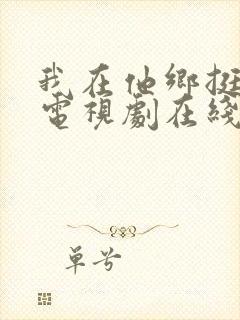 我在他鄉挺
電視劇在綫
單號